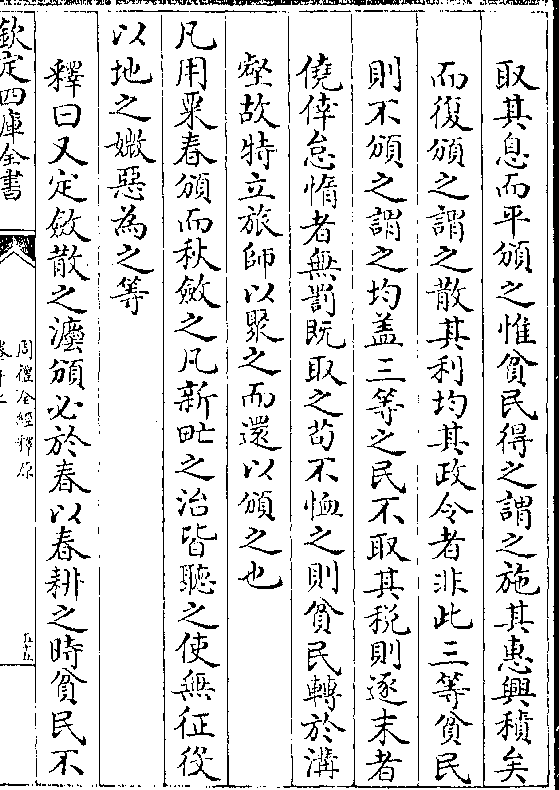 取其息而平頒之惟貧民得之謂之施其惠興積矣
而復頒之謂之散其利均其政令者非此三等貧民
則不頒之謂之均盖三等之民不取其税則逐末者
僥倖怠惰者無罰既取之苟不恤之則貧民轉於溝
壑故特立旅師以聚之而還以頒之也
凡用粟春頒而秋斂之凡新甿之治皆聽之使無征役
以地之媺惡為之等
釋曰又定斂散之灋頒必於春以春耕之時貧民不
欽定四庫全書
周禮全經釋原